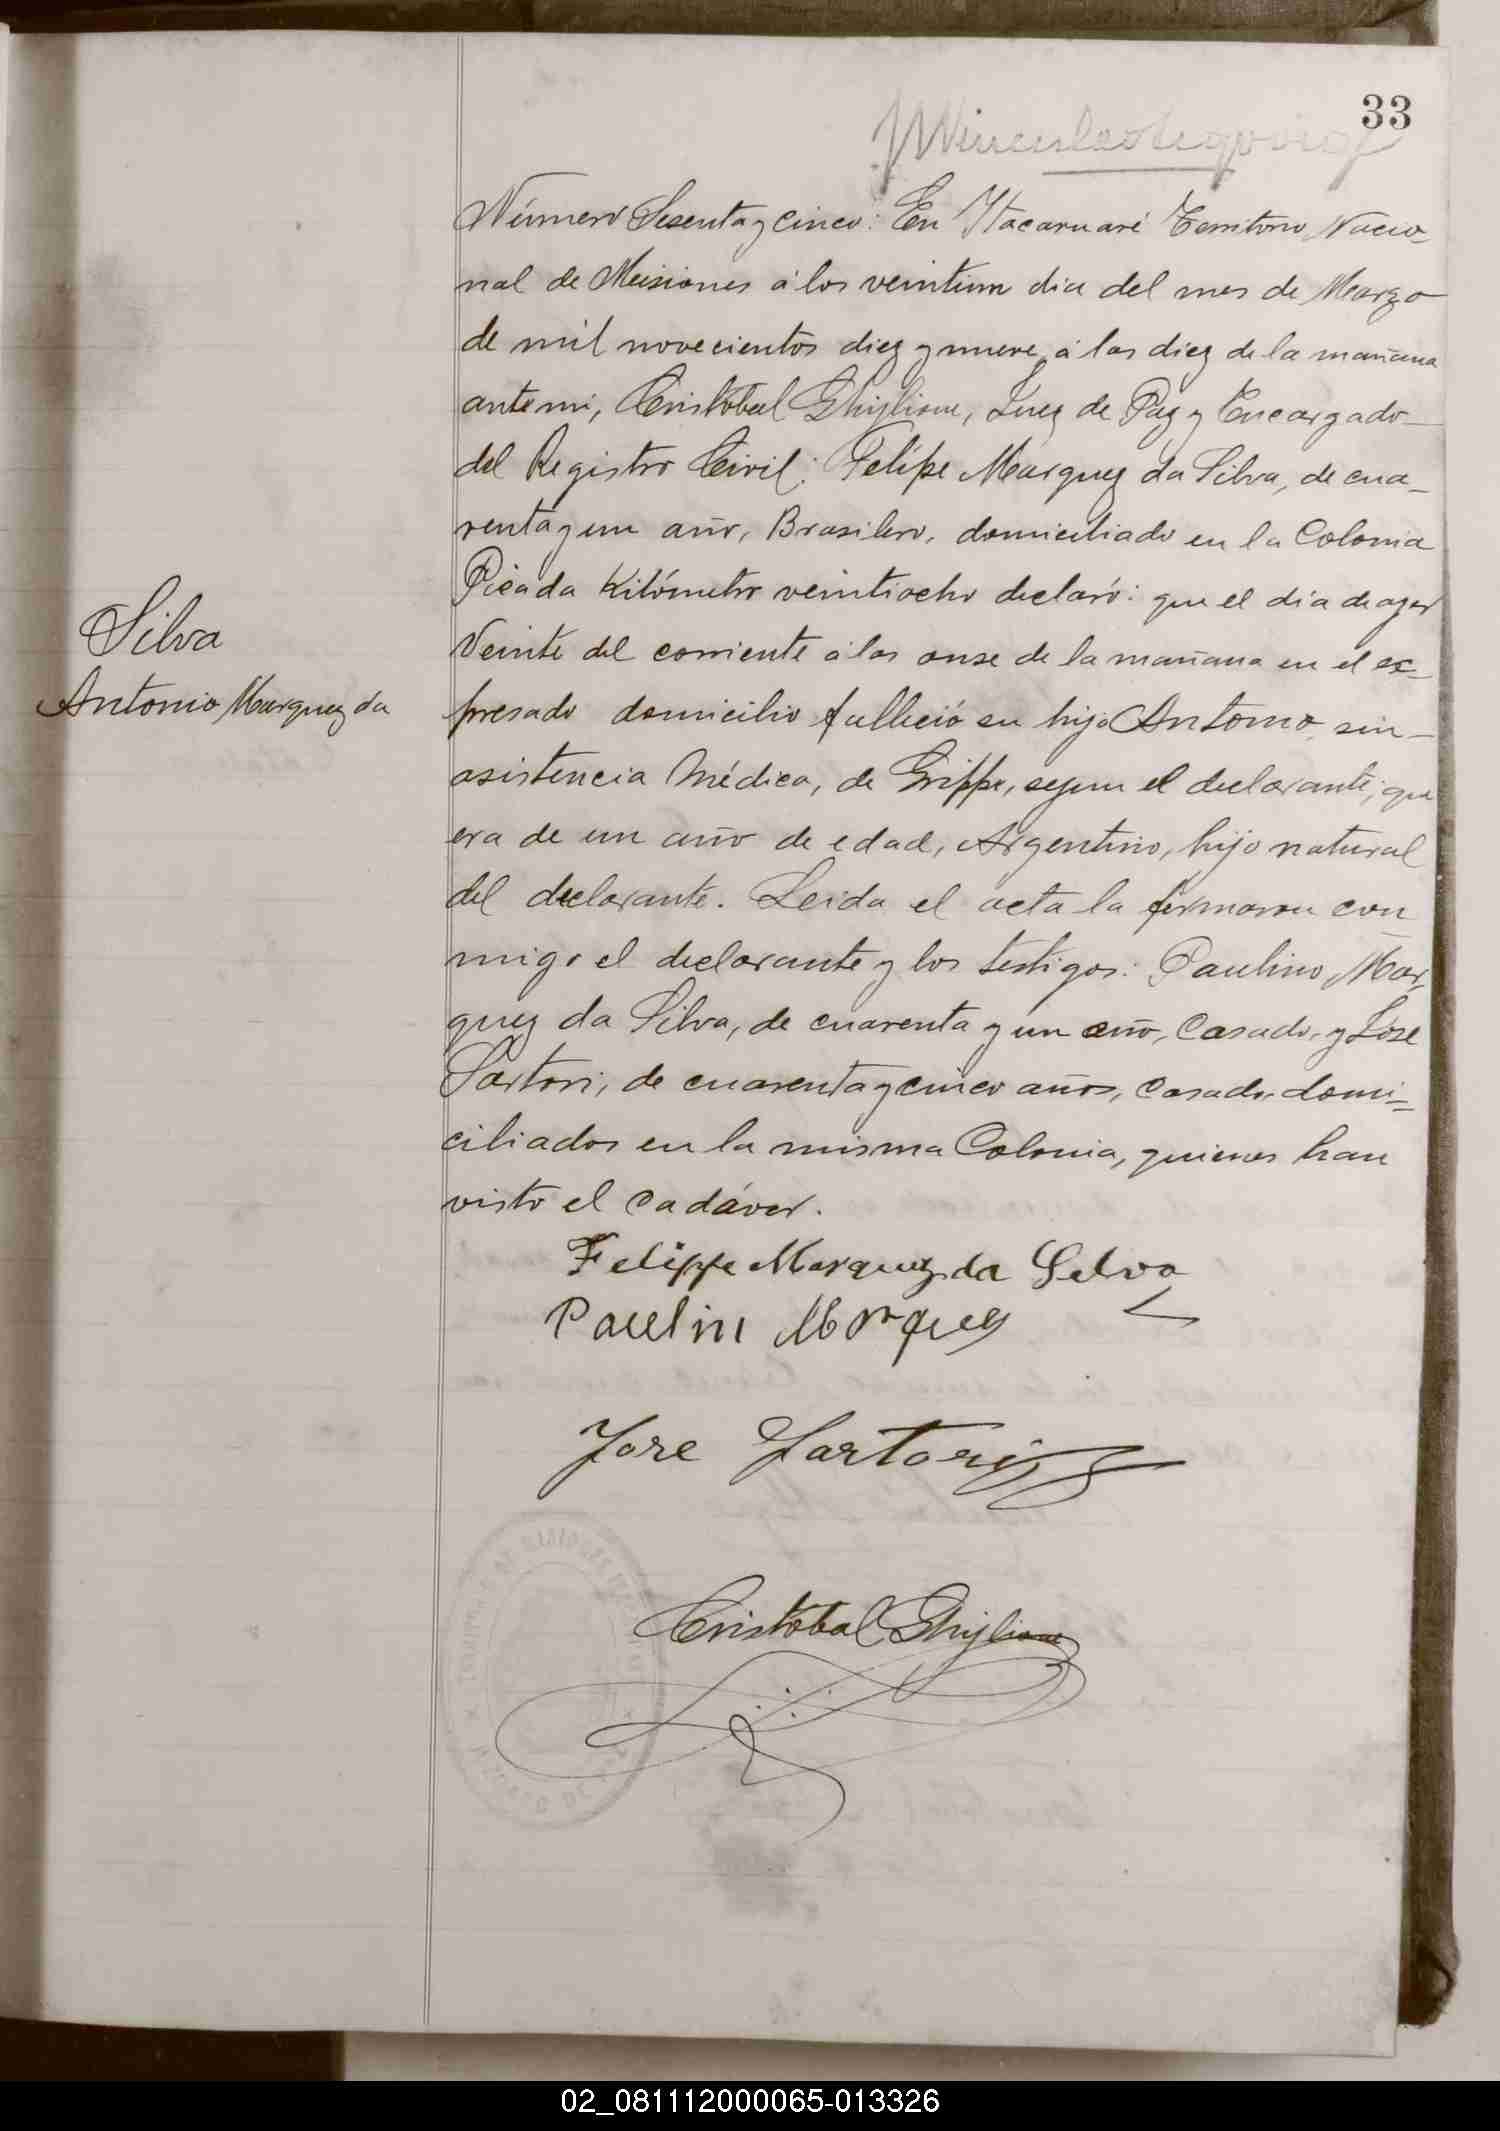 33
Número Sesenta y cinco: En Itacaruaré Territorio Nacio-
nal de Misiones á los veintiun dia del mes de Marzo
de mil novecientos diez y nueve, á las diez de la mañana
ante mi, Cristóbal Ghiglione, Juez de Paz y Encargado
del Registro Civil: Felípe Marquez da Silva, de cua-
renta y un año, Brasilero, domiciliado en la Colonia
Picada Kilómetro veintiocho declaró: que el día de ayer
Veinte del corriente á las onse de la mañana en el ex-
Silva
Antonio Marquez da
presado domicilio falleció su hijo Antonio, sin
asistencia Médica, de Grippe, segun el declarante; que
era de un año de edad, Argentino, hijo natural
del declarante. Leida el acta la firmaron con
migo el declarante y los testigos: Paulino Mar,
quez da Silva, de cuarenta y un año, Casado, y José
Sartori, de cuarenta y cinco años, Casado, domi-
ciliados en la misma Colonia, quienes han
visto el cadáver.
Felippe Marquez da Selva
Paulin Marques
Jose Sartori
Cristóbal Ghiglione
02_081112000065-013326